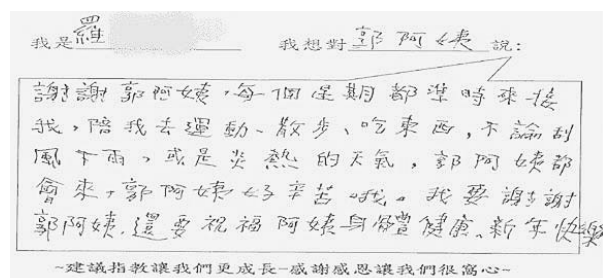 我是羅 我想對郭阿姨說:
謝謝郭阿姨,每一個星期都準時來接
我,陪我去運動、散步、吃東西,不論刮
風下雨,或是炎熱的天氣,郭阿姨都
會來,郭阿姨好辛苦。我要謝謝
郭阿姨,還要祝福阿姨身體健康、新年快樂
~建議指教讓我們更成長-感謝感恩讓我們很窩心~